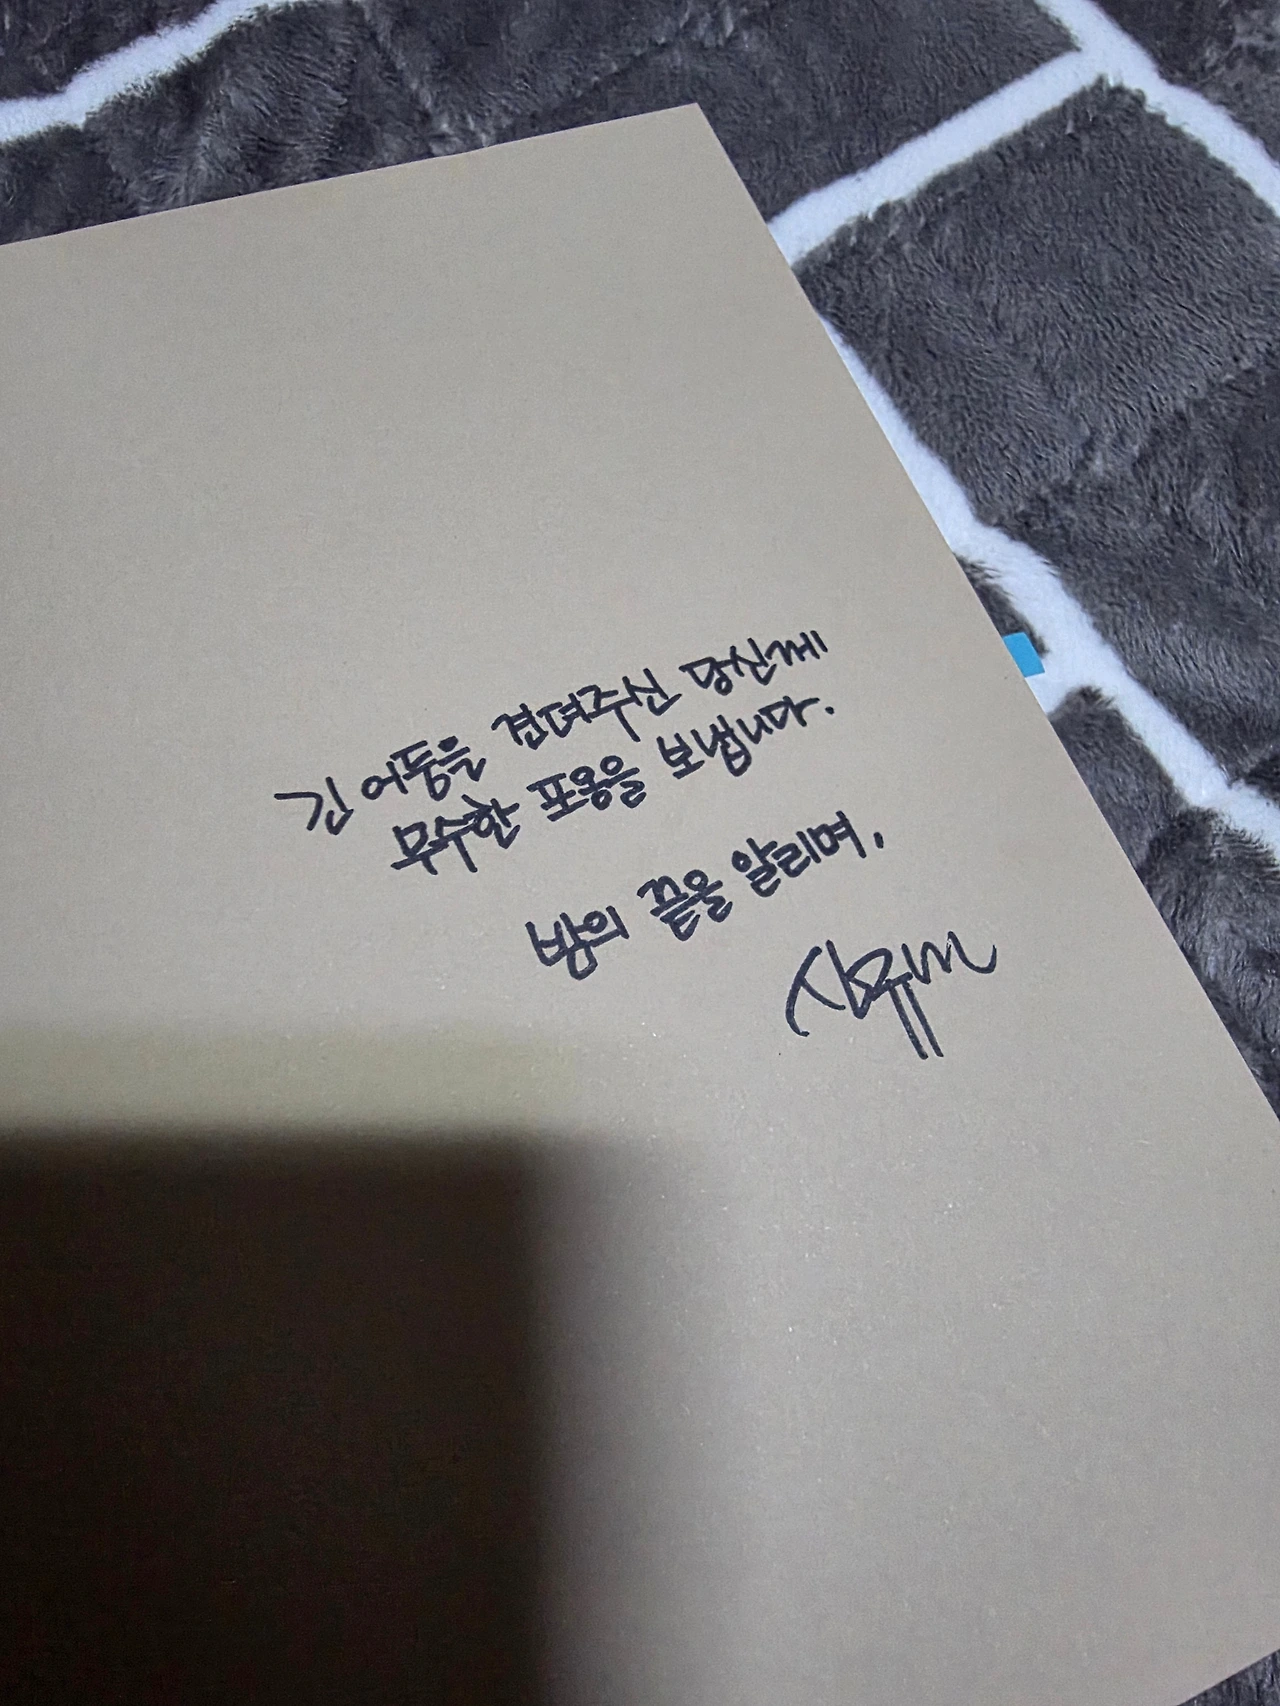 긴 어둠을 견뎌주신 당신께
무수한 포옹을 보냅니다.
밤의 끝을 알리며,